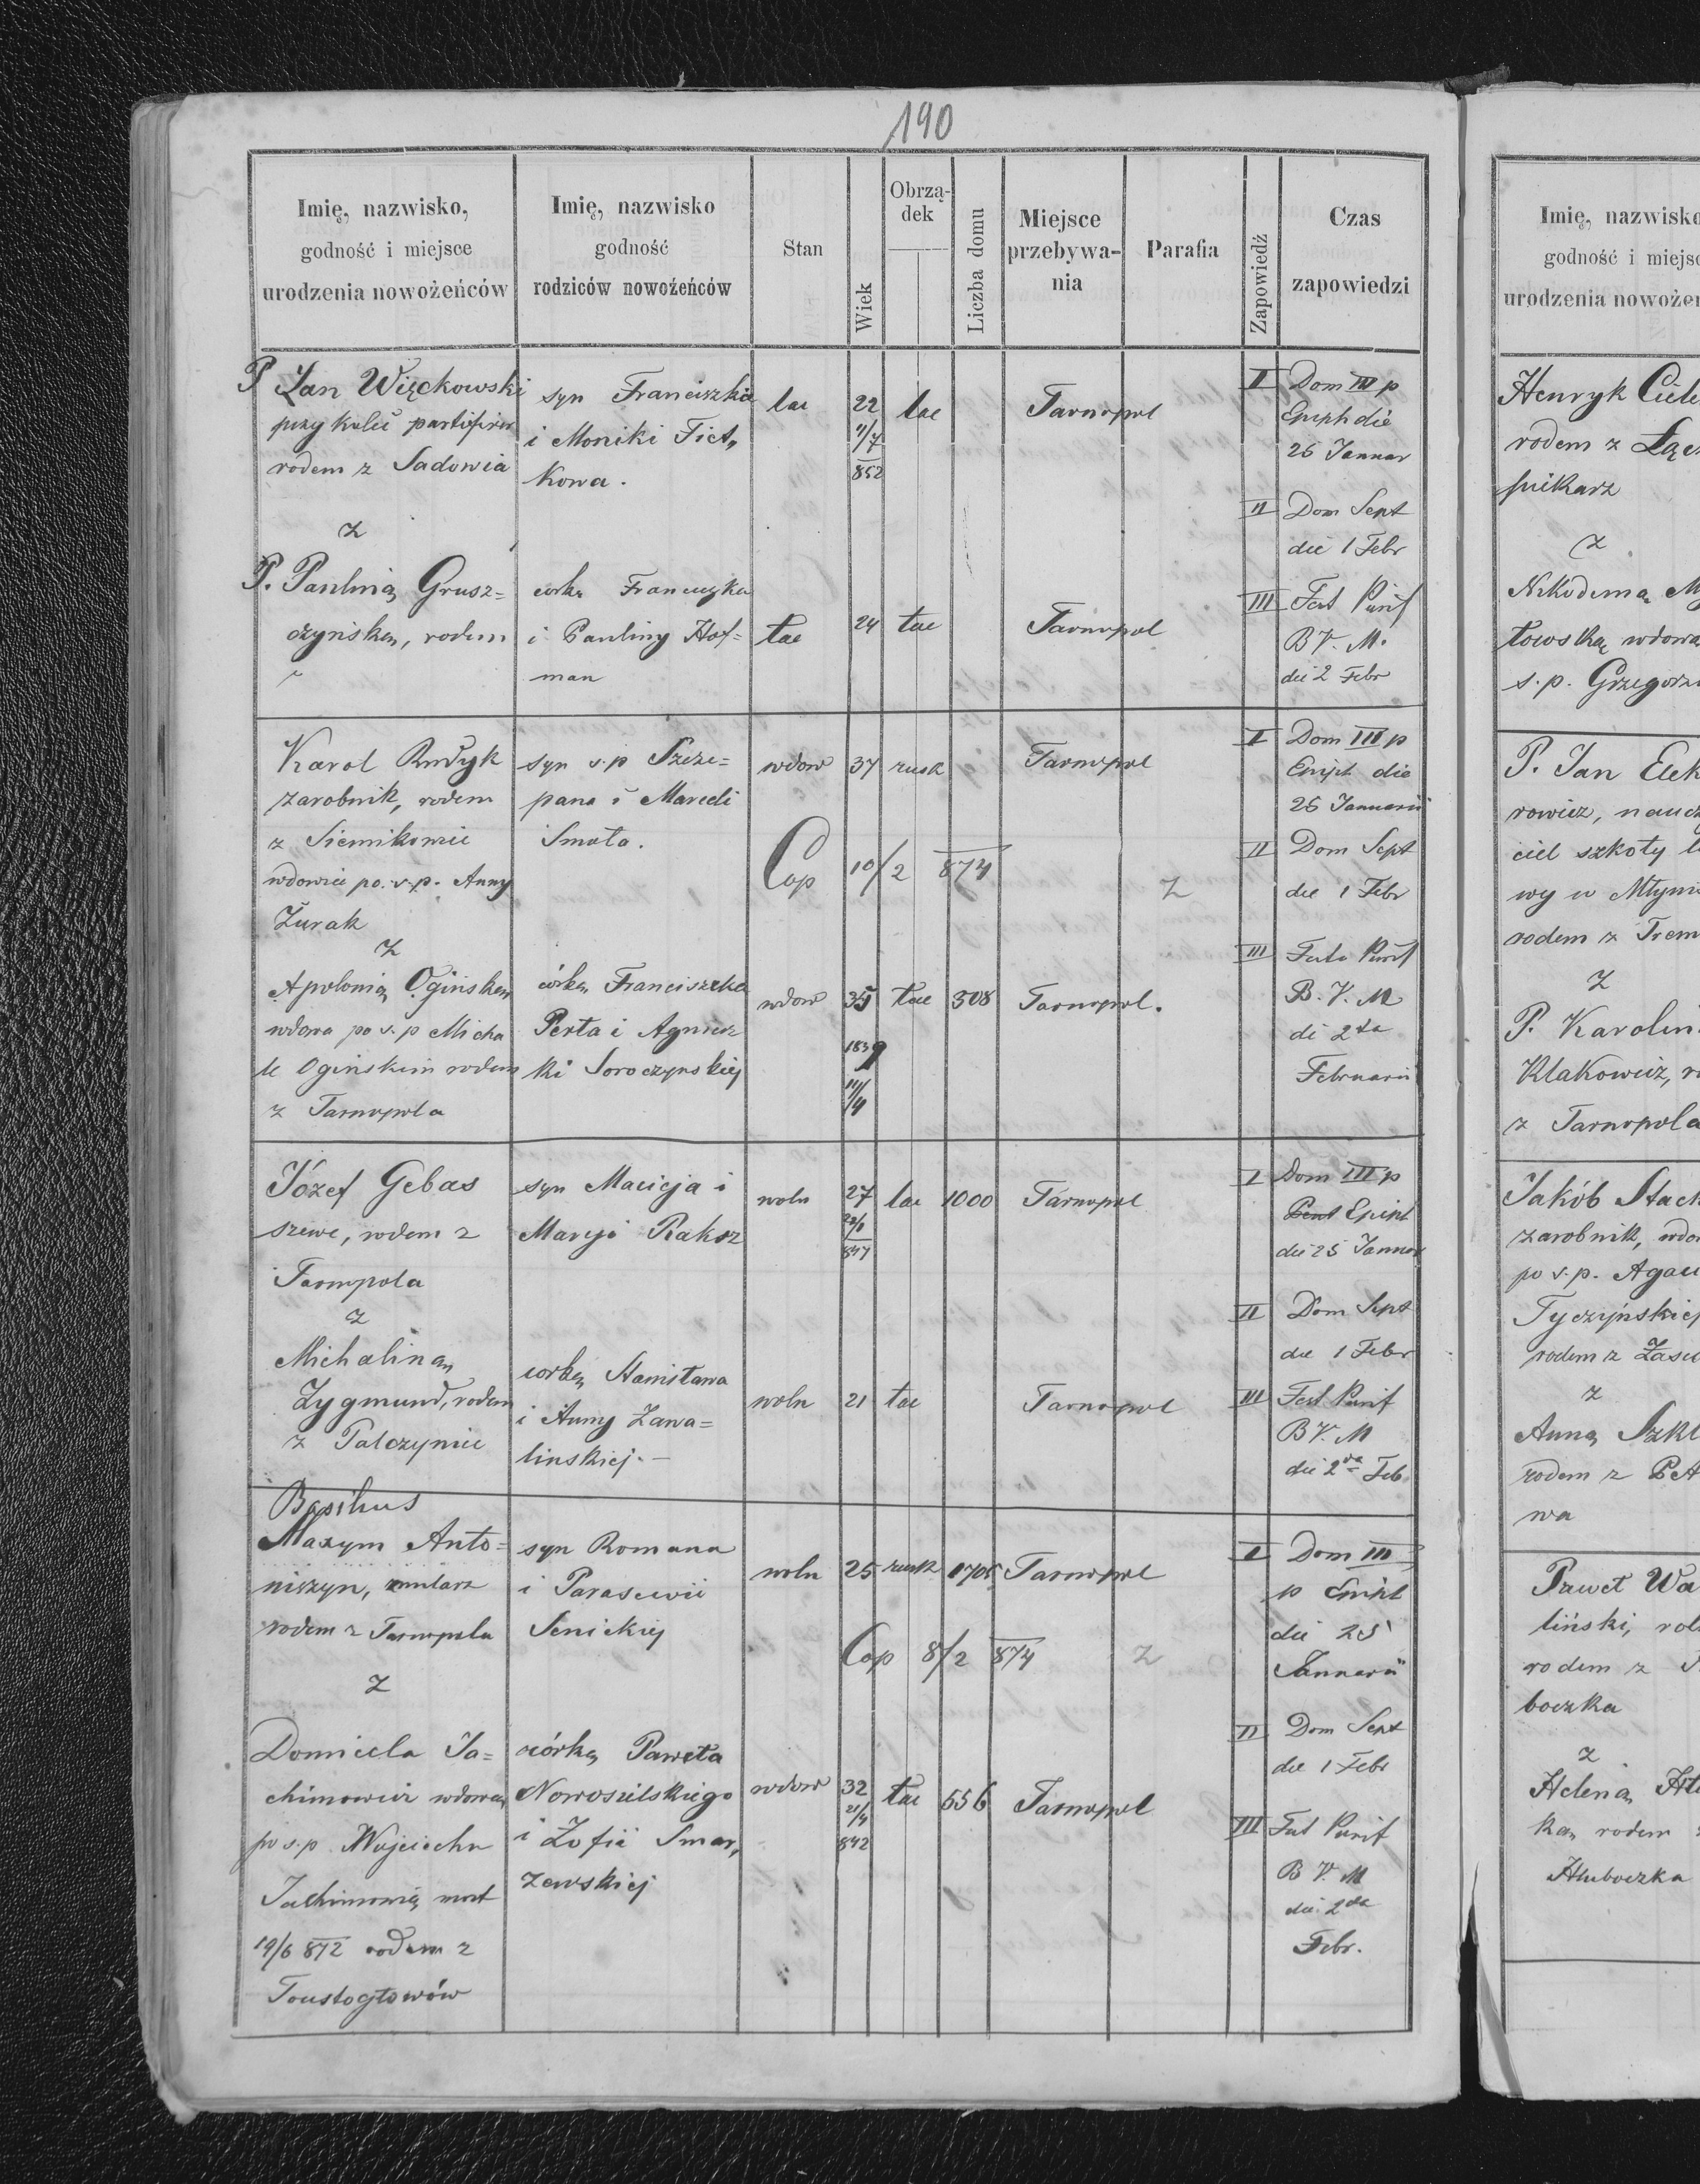 190
Imię, nazwisko,
godność i miejsce
urodzenia nowożeńców
Imię, nazwisko
godność
rodziców nowożeńców
Stan
Wiek
Obrzą-
dek
Liczba domu
Miejsce
przebywa-
nia
Parafia
Zapowiedź
Czas
zapowiedzi
P Jan Więckowski
przy kolei
rodem z Sadowia
z
P. Pauliną Grusz=
czyńską, rodem
syn Franciszka
i Moniki Fict,
kowa.
córka Franciszka
i Pauliny Hof=
man
lac
22
11/7
852
lac
Tarnopol
lac
24
lac
Tarnopol
I Dom III p
Epiph die
25 Januar
II Dom Sept
die 1 Febr
III Fest Purif
B V. M.
die 2 Febr
Karol Rudyk
zarobnik, rodem
z Siemikowic
wdowiec po s.p. Anny
Żurak
z
Apolonią Ogińską
wdowa po s.p Micha
le Ogińskim rodem
z Tarnopola
syn s.p Szcze=
pana i Maryeli
Smoła.
córką Franciszka
Perta i Agniesz
ki Soroczyńskiej
wdow
37
rusk
Tarnopol
Cop 10/2 874
Z
wdow
35
1839
11/4
lac
308
Tarnopol.
I Dom III p
Epiph die
25 Januarii
II Dom Sept
die 1 Febr
III Festo Purif
B. V. M
di 2da
Februarii
Józef Gebas
szewc, rodem z
Tarnopola
z
Michaliną
Zygmund, rodem
z Palczyniec
syn Macieja i
Maryi Raksz
corką Stanisława
i Anny Zawa=
linskiej.-
woln
27
847
lac
1000
Tarnopol
woln
21
lac
Tarnopol
I Dom III p
Pent Epiph
die 25 Januar
II Dom Sept
die 1 Febr
III Fest Purif
B V. M
die 2da Feb.
Basilius
Maxym Anto=
niszyn, mularz
rodem z Tarnopola
z
Domicela Ja=
chimowicz wdową
po s.p. Wojciechu
Jachimowicz mort
19/6 872 rodem z
Toustogłowów
syn Romana
i Parascewii
Senickiej
córką Pawła
Nowosielskiego
i Zofii Smar,
zewskiej
woln
25
rusk
1705
Tarnopol
Cop 8/2 874
Z
wdow
32
21/4
842
lac
556
Tarnopol
I Dom III
p Epiph
die 25
Januarii
II Dom Sept
die 1 Febr
III Fest Purif
B V. M
die 2da
Febr.
Imię, nazwisko
godność i miejsc
urodzenia nowożeń
Henryk Ciele
rodem z Łącz
piekarz
z
Nikodemą My
łowską wdową
s.p. Grzegorz
P. Jan Elek
rowicz, naucz
ciel szkoły l
wy w Młyni
rodem z Trem
z
P. Karolin
Klakowicz, r
z Tarnopola
Jakób Stach
zarobnik, wdow
po s.p. Agacie
Tyczyńskiej
rodem z Zasc
z
Anną Szkl
rodem z Pet
wa
Paweł Wa
liński, rol
rodem z
boczka
z
Heleną Hl
ką rodem z
Hluboczka